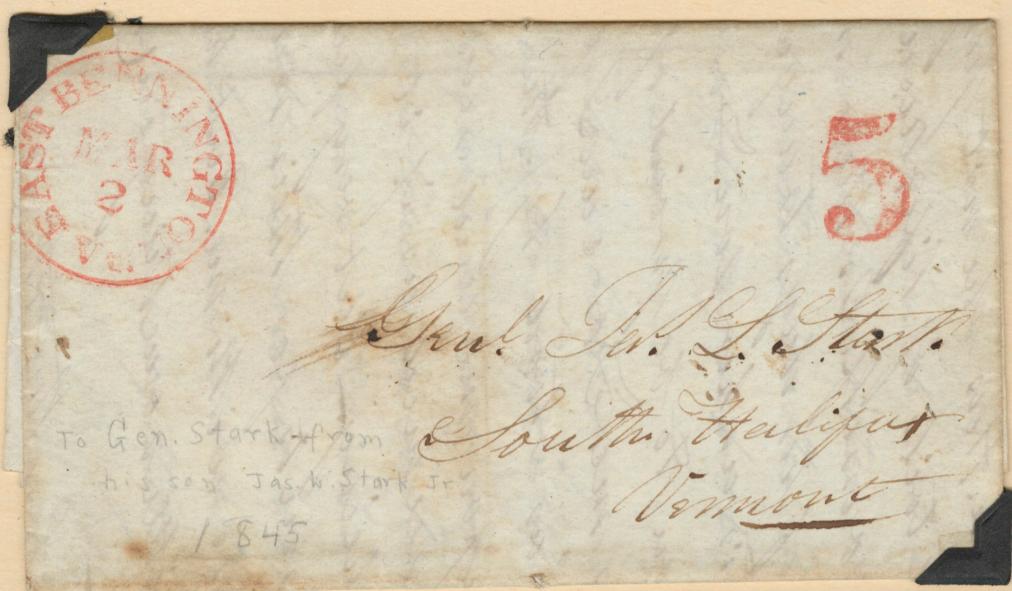 EAST BENNINGTON
MAR
2
5
Genl. Jas. L. Stark.
South Halifax
Vermont
To Gen. Stark from
his son Jas. W. Stark Jr
1845